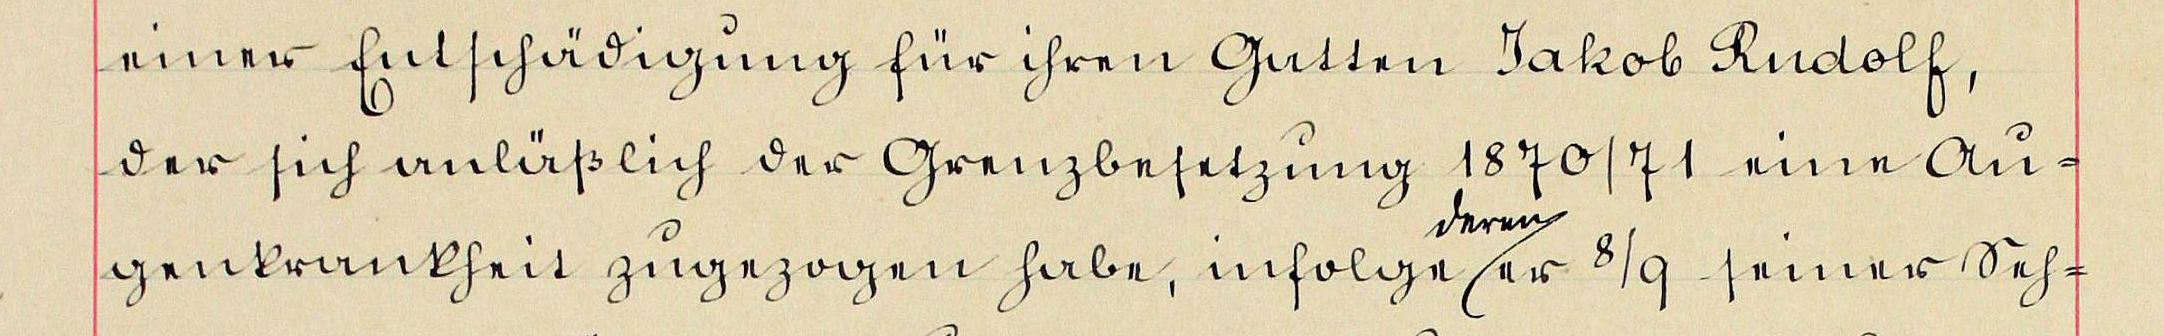 einer Entschädigung für ihren Gatten Jakob Rudolf,
der sich anläßlich der Grenzbesetzung 1870/71 eine Au-
deren
genkrankheit zugezogen habe, infolge er 8/9 seiner Seh-